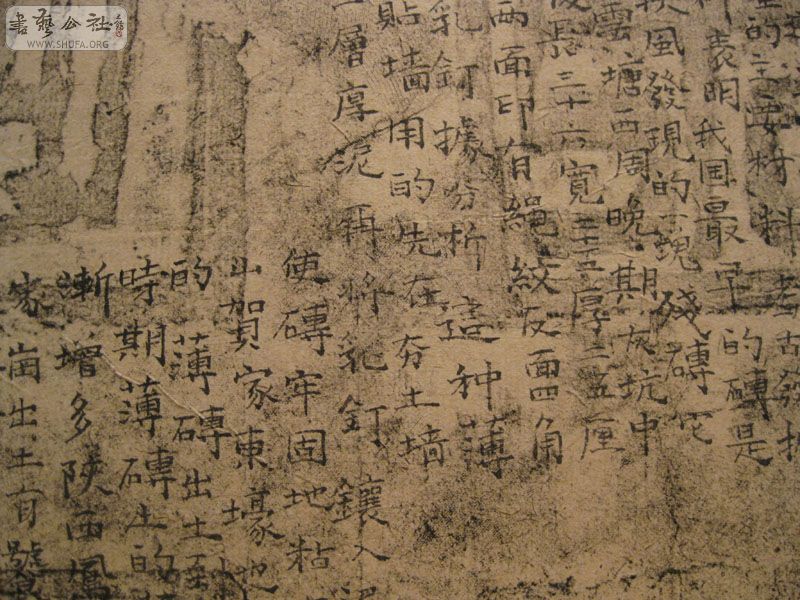 書藝公社
WWW.SHUFA.ORG
的主要材料考古發掘
表明我国最早的磚是
扶風發現的一塊殘磚它
雲塘西周晚期灰坑中
長三十六寬厚二五厘
两面印有繩紋反面四角
乳釘據分析這種薄
貼墙用的先在夯土墙
一層厚泥再將乳釘鑲入
使磚牢固地粘
山賀家東壕也
的薄磚出土至
時期薄磚上的
漸增多陝西鳳
家崗出土有號